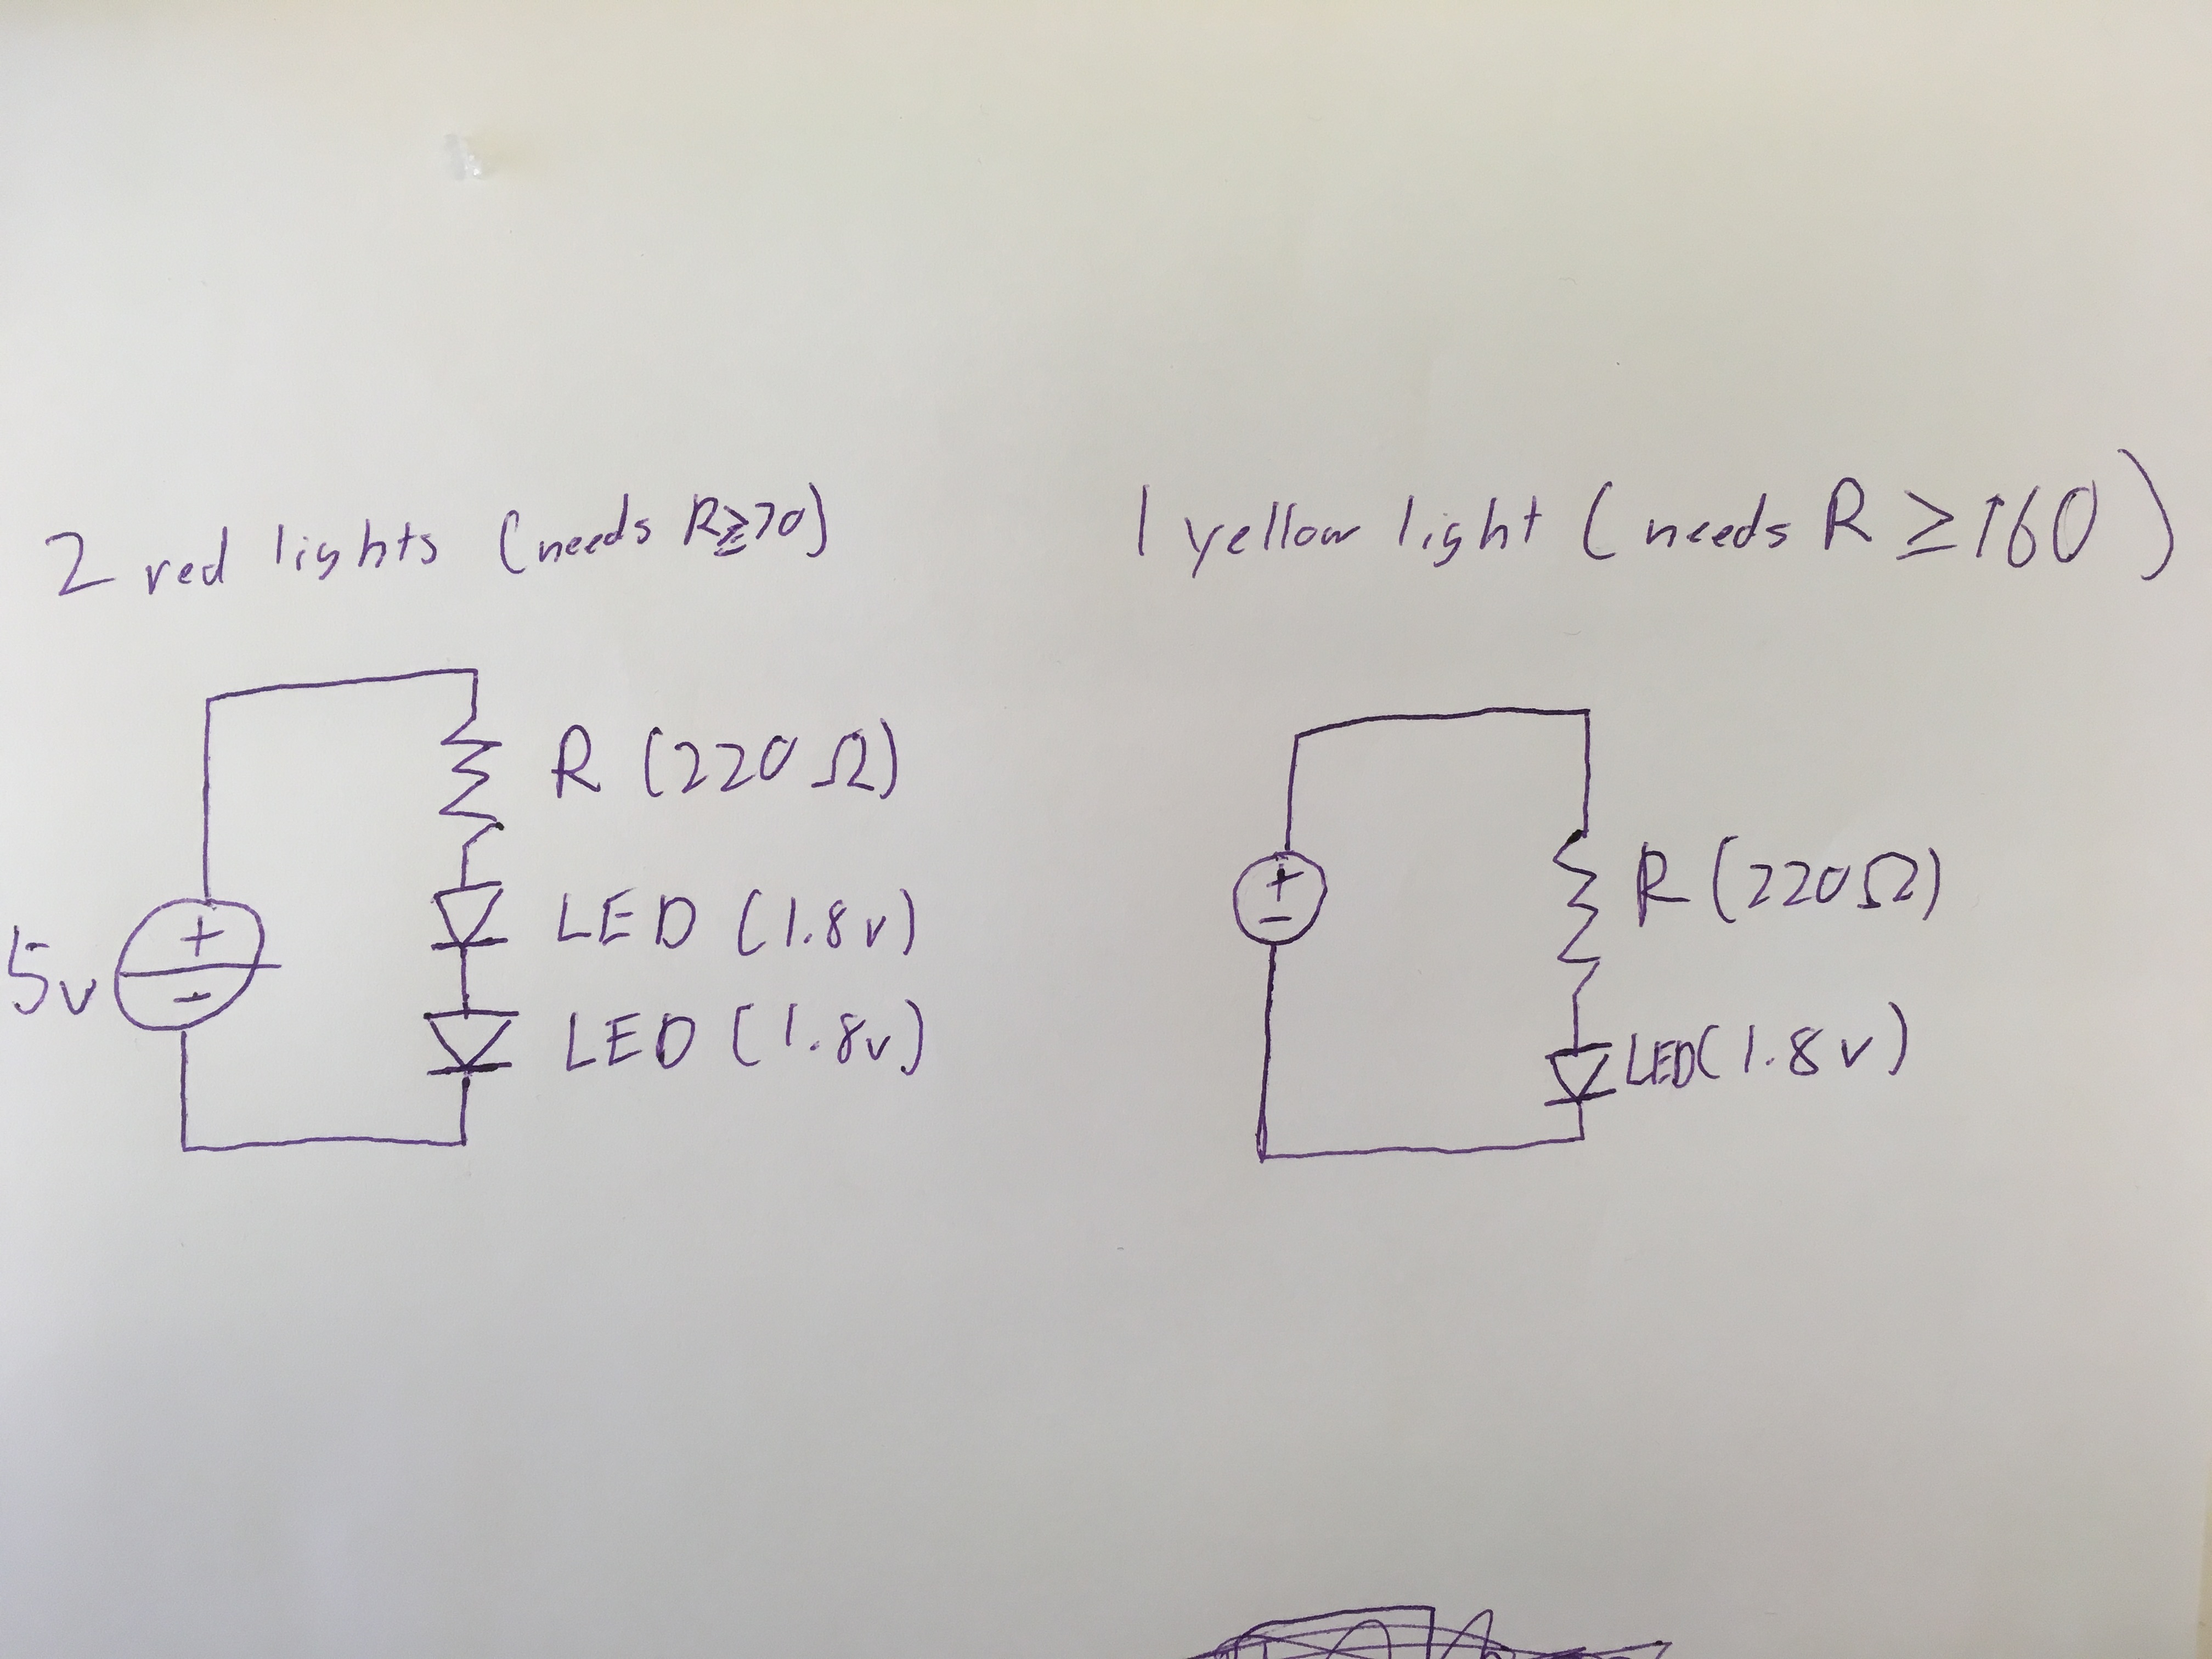 2 red lights (needs R≥70)
5v
+
-
R (220 Ω)
LED (1.8v)
LED (1.8v)
1 yellow light (needs R ≥ 160)
+
-
R (220Ω)
LED (1.8v)